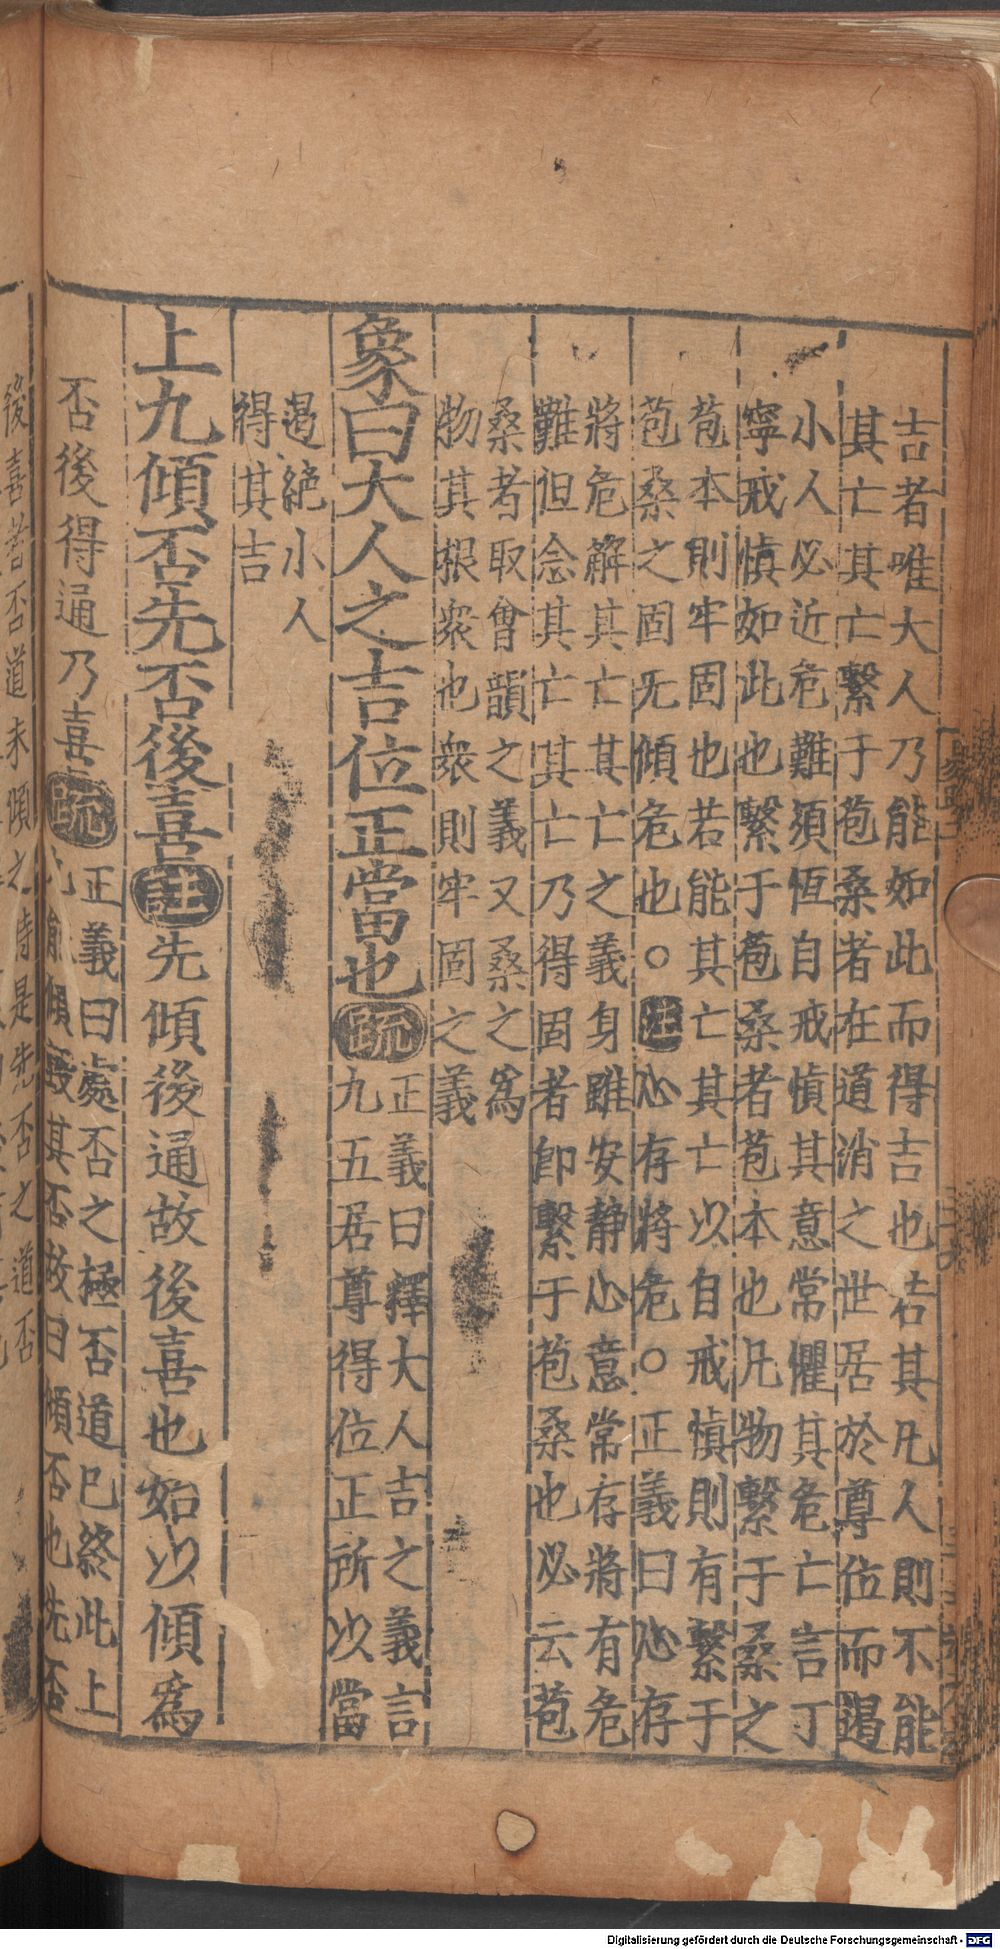 吉者唯大人乃能如此而得吉也若其凡人則不能
其亡其亡繫于苞桑者在道消之世居於尊位而遏
小人必近危難須恆自戒慎其意常懼其危亡言丁
寧戒慎如此也繫于苞桑者苞本也凡物繫于桑之
苞本則牢固也若能其亡其亡以自戒慎則有繫于
苞桑之固无傾危也○注心存將危○正義曰心存
將危解其亡其亡之義身雖安静心意常存將有危
難但念其亡其亡乃得固者即繫于苞桑也必云苞
桑者取會韻之義又桑之為
物其根衆也衆則牢固之義
象曰大人之吉位正當也疏
正義曰釋大人吉之義言
九五居尊得位正所以當
遏絶小人
得其吉
上九傾否先否後喜註先傾後通故後喜也始以傾爲
否後得通乃喜疏
正義曰處否之極否道已終此上
九能傾毀其否故曰傾否也先否
後喜者否道未傾之時是先否之道否
Digitalisierung gefördert durch die Deutsche Forschungsgemeinschaft - DFG